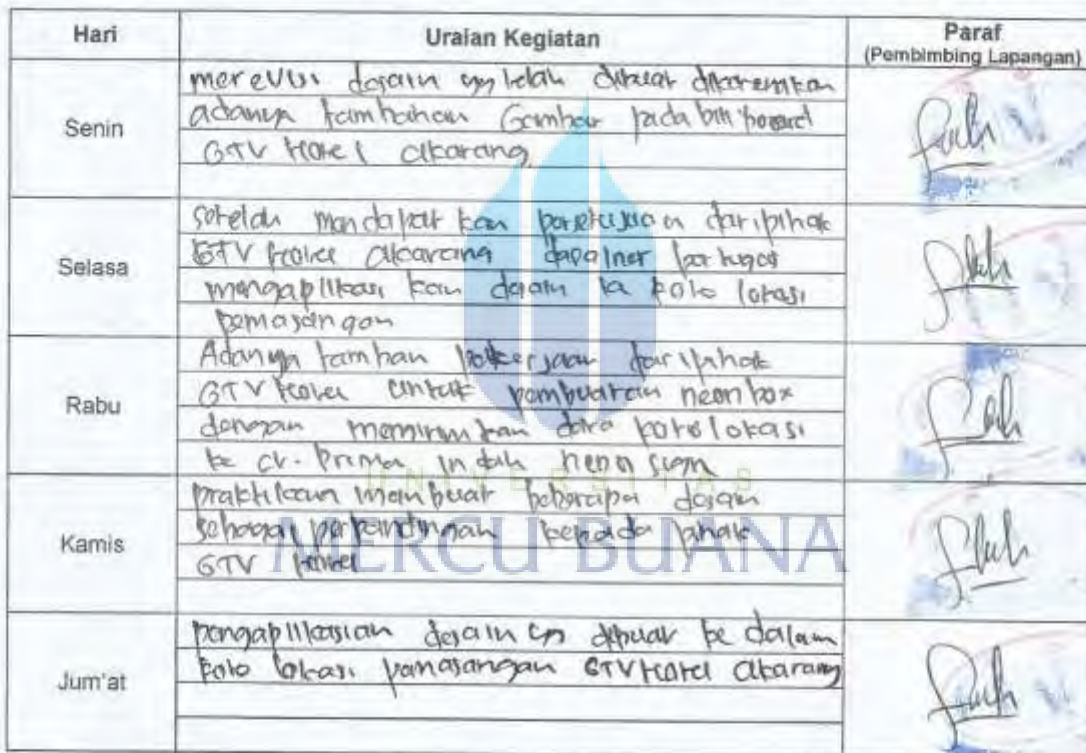 Hari
Uraian Kegiatan
Paraf
(Pembimbing Lapangan)
Senin
merevisi desain yg telah dibuat dikarenakan
adanya tambahan Gambar pada billboard
GTV Hotel cikarang
Selasa
setelah mendapat kan persetujuan dari pihak
GTV Hotel cikarang
mengaplikasi kan desain ke foto lokasi
pemasangan
Rabu
Adanya tamban pekerjaan dari pihak
GTV Hotel untuk pembuatan neon box
dengan memirimkan data foto lokasi
ke cv. Prima indah neon sign
Kamis
praktikan membuat beberapa desain
sebagai perbandingan kepada pihak
GTV Hotel
Jum'at
pengaplikasian desain yg dibuat ke dalam
foto lokasi pemasangan GTV Hotel cikarang
UNIVERSITAS
MERCU BUANA